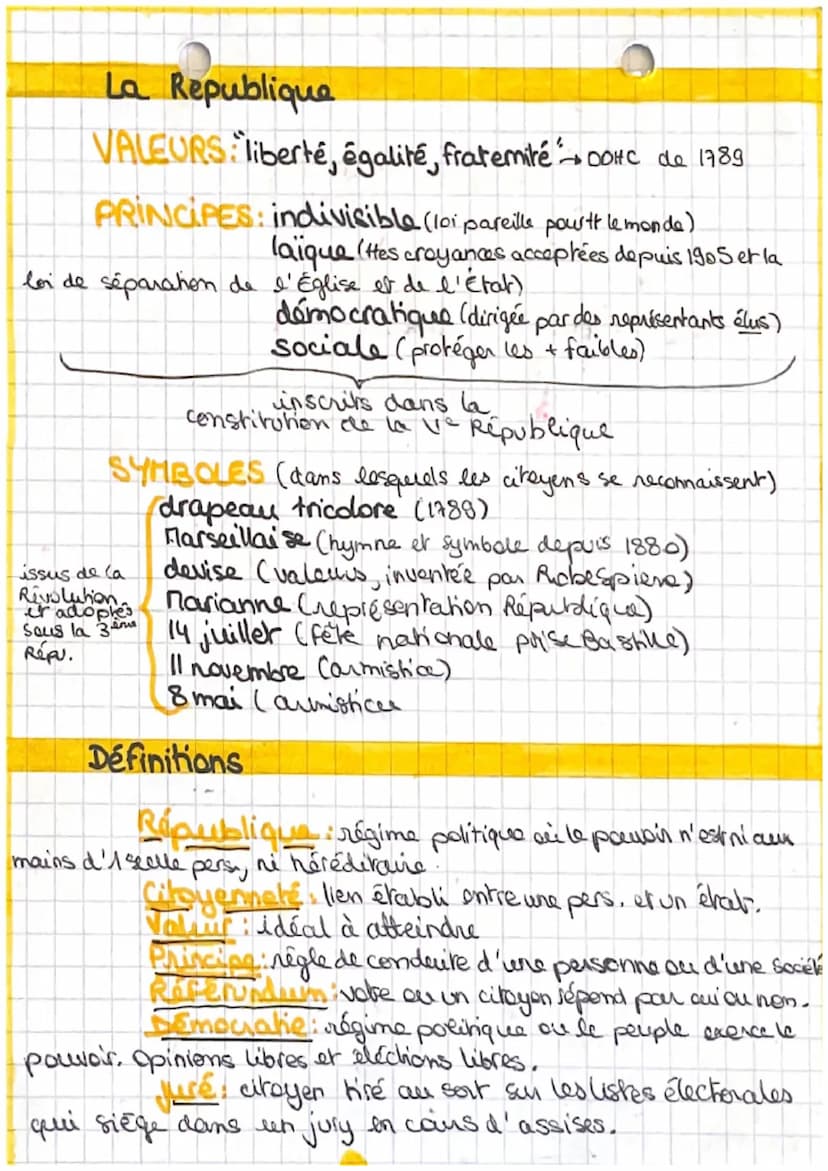 La République
VALEURS: "liberté, égalité, fraternité" → DDHC de 1789
PRINCIPES: indivisible (loi pareille pour tt le monde)
laïque (ttes croyances acceptées depuis 1905 et la
loi de séparation de l'Église et de l'État)
démocratique (dirigée par des représentants élus)
sociale (protéger les + faibles)
inscrits dans la
constitution de la Ve République
SYMBOLES (dans lesquels les citoyens se reconnaissent)
drapeau tricolore (1789)
Marseillaise (hymne et symbole depuis 1880)
devise (valeurs, inventée par Robespierre)
Marianne (représentation République)
14 juillet (fête nationale prise Bastille)
11 novembre (armistice)
8 mai (armistices
issus de la
Révolution
et adoptés
sous la 3ème
Répu.
Définitions
République : régime politique où le pouvoir n'est ni aux
mains d'1 seule pers, ni héréditaire.
Citoyenneté : lien établi entre une pers. et un état.
Valeur : idéal à atteindre
Principe : règle de conduite d'une personne ou d'une société
Référundum : vote ou un citoyen répond par oui ou non.
Démocratie : régime politique ou le peuple exerce le
pouvoir. Opinions libres et éléctions libres.
Juré : citoyen tiré au sort sur les listes électorales
qui siège dans un jury en cours d'assises.